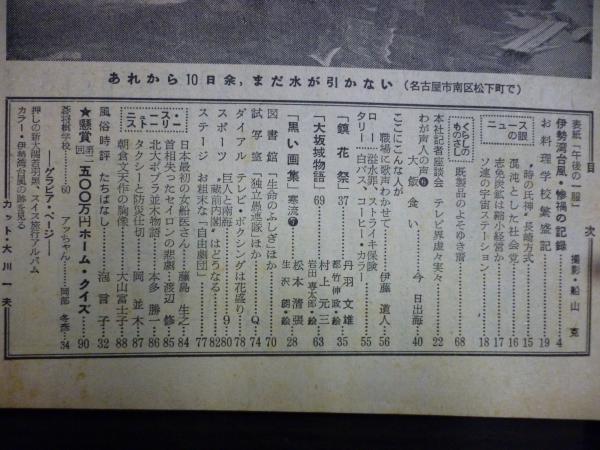 あれから10日余，まだ水が引かない（名古屋市南区松下町で）
目次
表紙「午後の一服」 撮影・船山克
伊勢湾台風・惨禍の記録 4
お料理学校繁盛記 19
ニュースの眼
“時の氏神”長崎方式 15
混沌とした社会党 16
志免炭鉱は縮小経営か 17
ソ連の宇宙ステーション 18
くらしのものさし
既製品のよそゆき着 68
本社記者座談会 テレビ界虚々実々 22
わが声人の声⑥
大飯食い 今日出海 40
ここにこんな人が
職場に歌声わかせて 伊藤道人 56
ロータリー
溢水罪、ストライキ保険
白バス、コーヒー・カラー 55
「鏡花祭」 37 丹羽文雄 35
都竹伸政・絵
「大坂城物語」 69 村上元三 63
岩田専太郎・絵
「黒い画集」寒流⑦ 松本清張 28
生沢朗・絵
図書館 「生命のふしぎ」ほか 70
試写室 「独立愚連隊」ほか Q 74
ダイアル テレビ・ボクシングは花盛り 78
スポーツ 巨人と南海 9 80
“蔵前内閣”はどうなる 82
ステージ お粗末な「自由劇団」 77
ニュース・ストーリー
日本最初の女船医さん 藤島生之 84
首相失ったセイロンの悲劇 渡辺修 85
北大ポプラ並木物語 本多勝一 86
タクシーと防災仕切 岡並木 87
朝倉文夫作の胸像 大山富士子 88
風俗時評 たちばなし 泡言子 32
★懸賞 第二回 五〇〇万円ホーム・クイズ 90
蒼将棋学校 60 アッちゃん 岡部冬彦 34
グラビア・ページ
押しの新大関若羽黒、スイス旅行アルバム
カラー・伊勢湾台風の跡を見る
カット・大川一夫